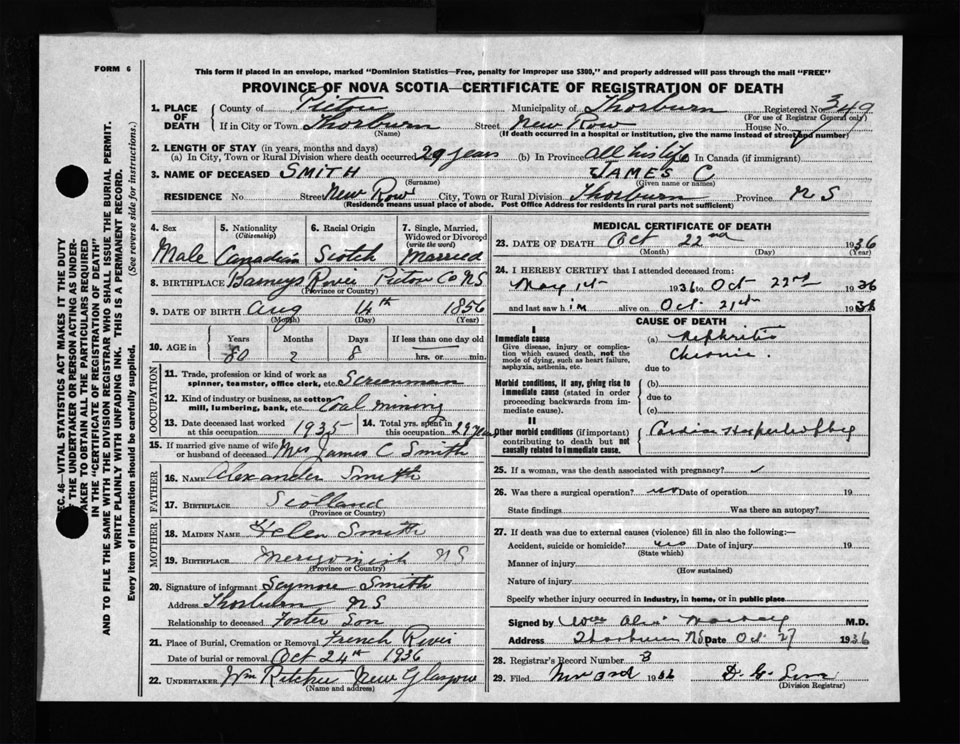 FORM 6
This form if placed in an envelope, marked "Dominion Statistics—Free, penalty for improper use $300," and properly addressed will pass through the mail "FREE"
PROVINCE OF NOVA SCOTIA—CERTIFICATE OF REGISTRATION OF DEATH
1. PLACE OF DEATH County of Pictou Municipality of Thorburn Registered No. 349
(For use of Registrar General only)
If in City or Town Thorburn Street New Row House No.
(Name) (If death occurred in a hospital or institution, give the name instead of street and number)
2. LENGTH OF STAY (in years, months and days)
(a) In City, Town or Rural Division where death occurred 29 years (b) In Province all his life In Canada (if immigrant)
3. NAME OF DECEASED SMITH JAMES C
(Surname) (Given name or names)
RESIDENCE No Street New Row City, Town or Rural Division Thorburn Province N S
(Residence means usual place of abode. Post Office Address for residents in rural parts not sufficient)
4. Sex Male
5. Nationality (Citizenship) Canadian
6. Racial Origin Scotch
7. Single, Married, Widowed or Divorced (write the word) Married
8. BIRTHPLACE Barneys River Pictou Co NS
(Province or Country)
9. DATE OF BIRTH Aug 14th 1856
(Month) (Day) (Year)
10. AGE in Years Months Days If less than one day old
80 2 8 hrs. or min.
OCCUPATION
11. Trade, profession or kind of work as spinner, teamster, office clerk, etc. Screenman
12. Kind of industry or business, as cotton mill, lumbering, bank, etc. Coal mining
13. Date deceased last worked at this occupation 1935 14. Total yrs. spent in this occupation 29 years
15. If married give name of wife or husband of deceased Mrs James C Smith
FATHER
16. NAME Alexander Smith
17. BIRTHPLACE Scotland
(Province or Country)
MOTHER
18. MAIDEN NAME Helen Smith
19. BIRTHPLACE Merigomish NS
(Province or Country)
20. Signature of informant Seymore Smith
Address Thorburn NS
Relationship to deceased Foster Son
21. Place of Burial, Cremation or Removal French River
Date of burial or removal Oct 24th 1936
22. UNDERTAKER Wm Ritchie New Glasgow
(Name and address)
MEDICAL CERTIFICATE OF DEATH
23. DATE OF DEATH Oct 22nd 1936
(Month) (Day) (Year)
24. I HEREBY CERTIFY that I attended deceased from:
May 1st 1936 to Oct 22nd 1936
and last saw him alive on Oct 21st 1936
CAUSE OF DEATH
I
Immediate cause (a) Nephritis
Give disease, injury or complication which caused death, not the mode of dying, such as heart failure, asphyxia, asthenia, etc. Chronic.
due to
Morbid conditions, if any, giving rise to immediate cause (stated in order proceeding backwards from immediate cause). (b)
due to
(c)
II
Other morbid conditions (if important) contributing to death but not causally related to immediate cause. Cardiac
25. If a woman, was the death associated with pregnancy?
26. Was there a surgical operation? no Date of operation 19
State findings Was there an autopsy?
27. If death was due to external causes (violence) fill in also the following:—
Accident, suicide or homicide? no Date of injury 19
(State which)
Manner of injury
(How sustained)
Nature of injury
Specify whether injury occurred in industry, in home, or in public place
Signed by M.D.
Address Thorburn NS Date Oct 27 1936
28. Registrar's Record Number 3
29. Filed Nov 3rd 1936 D. G.
(Division Registrar)
SEC. 46—VITAL STATISTICS ACT MAKES IT THE DUTY
OF THE UNDERTAKER OR PERSON ACTING AS UNDERTAKER TO OBTAIN ALL THE PARTICULARS REQUIRED
IN THE "CERTIFICATE OF REGISTRATION OF DEATH"
AND TO FILE THE SAME WITH THE DIVISION REGISTRAR WHO SHALL ISSUE THE BURIAL PERMIT.
WRITE PLAINLY WITH UNFADING INK. THIS IS A PERMANENT RECORD.
Every item of information should be carefully supplied. (See reverse side for instructions.)